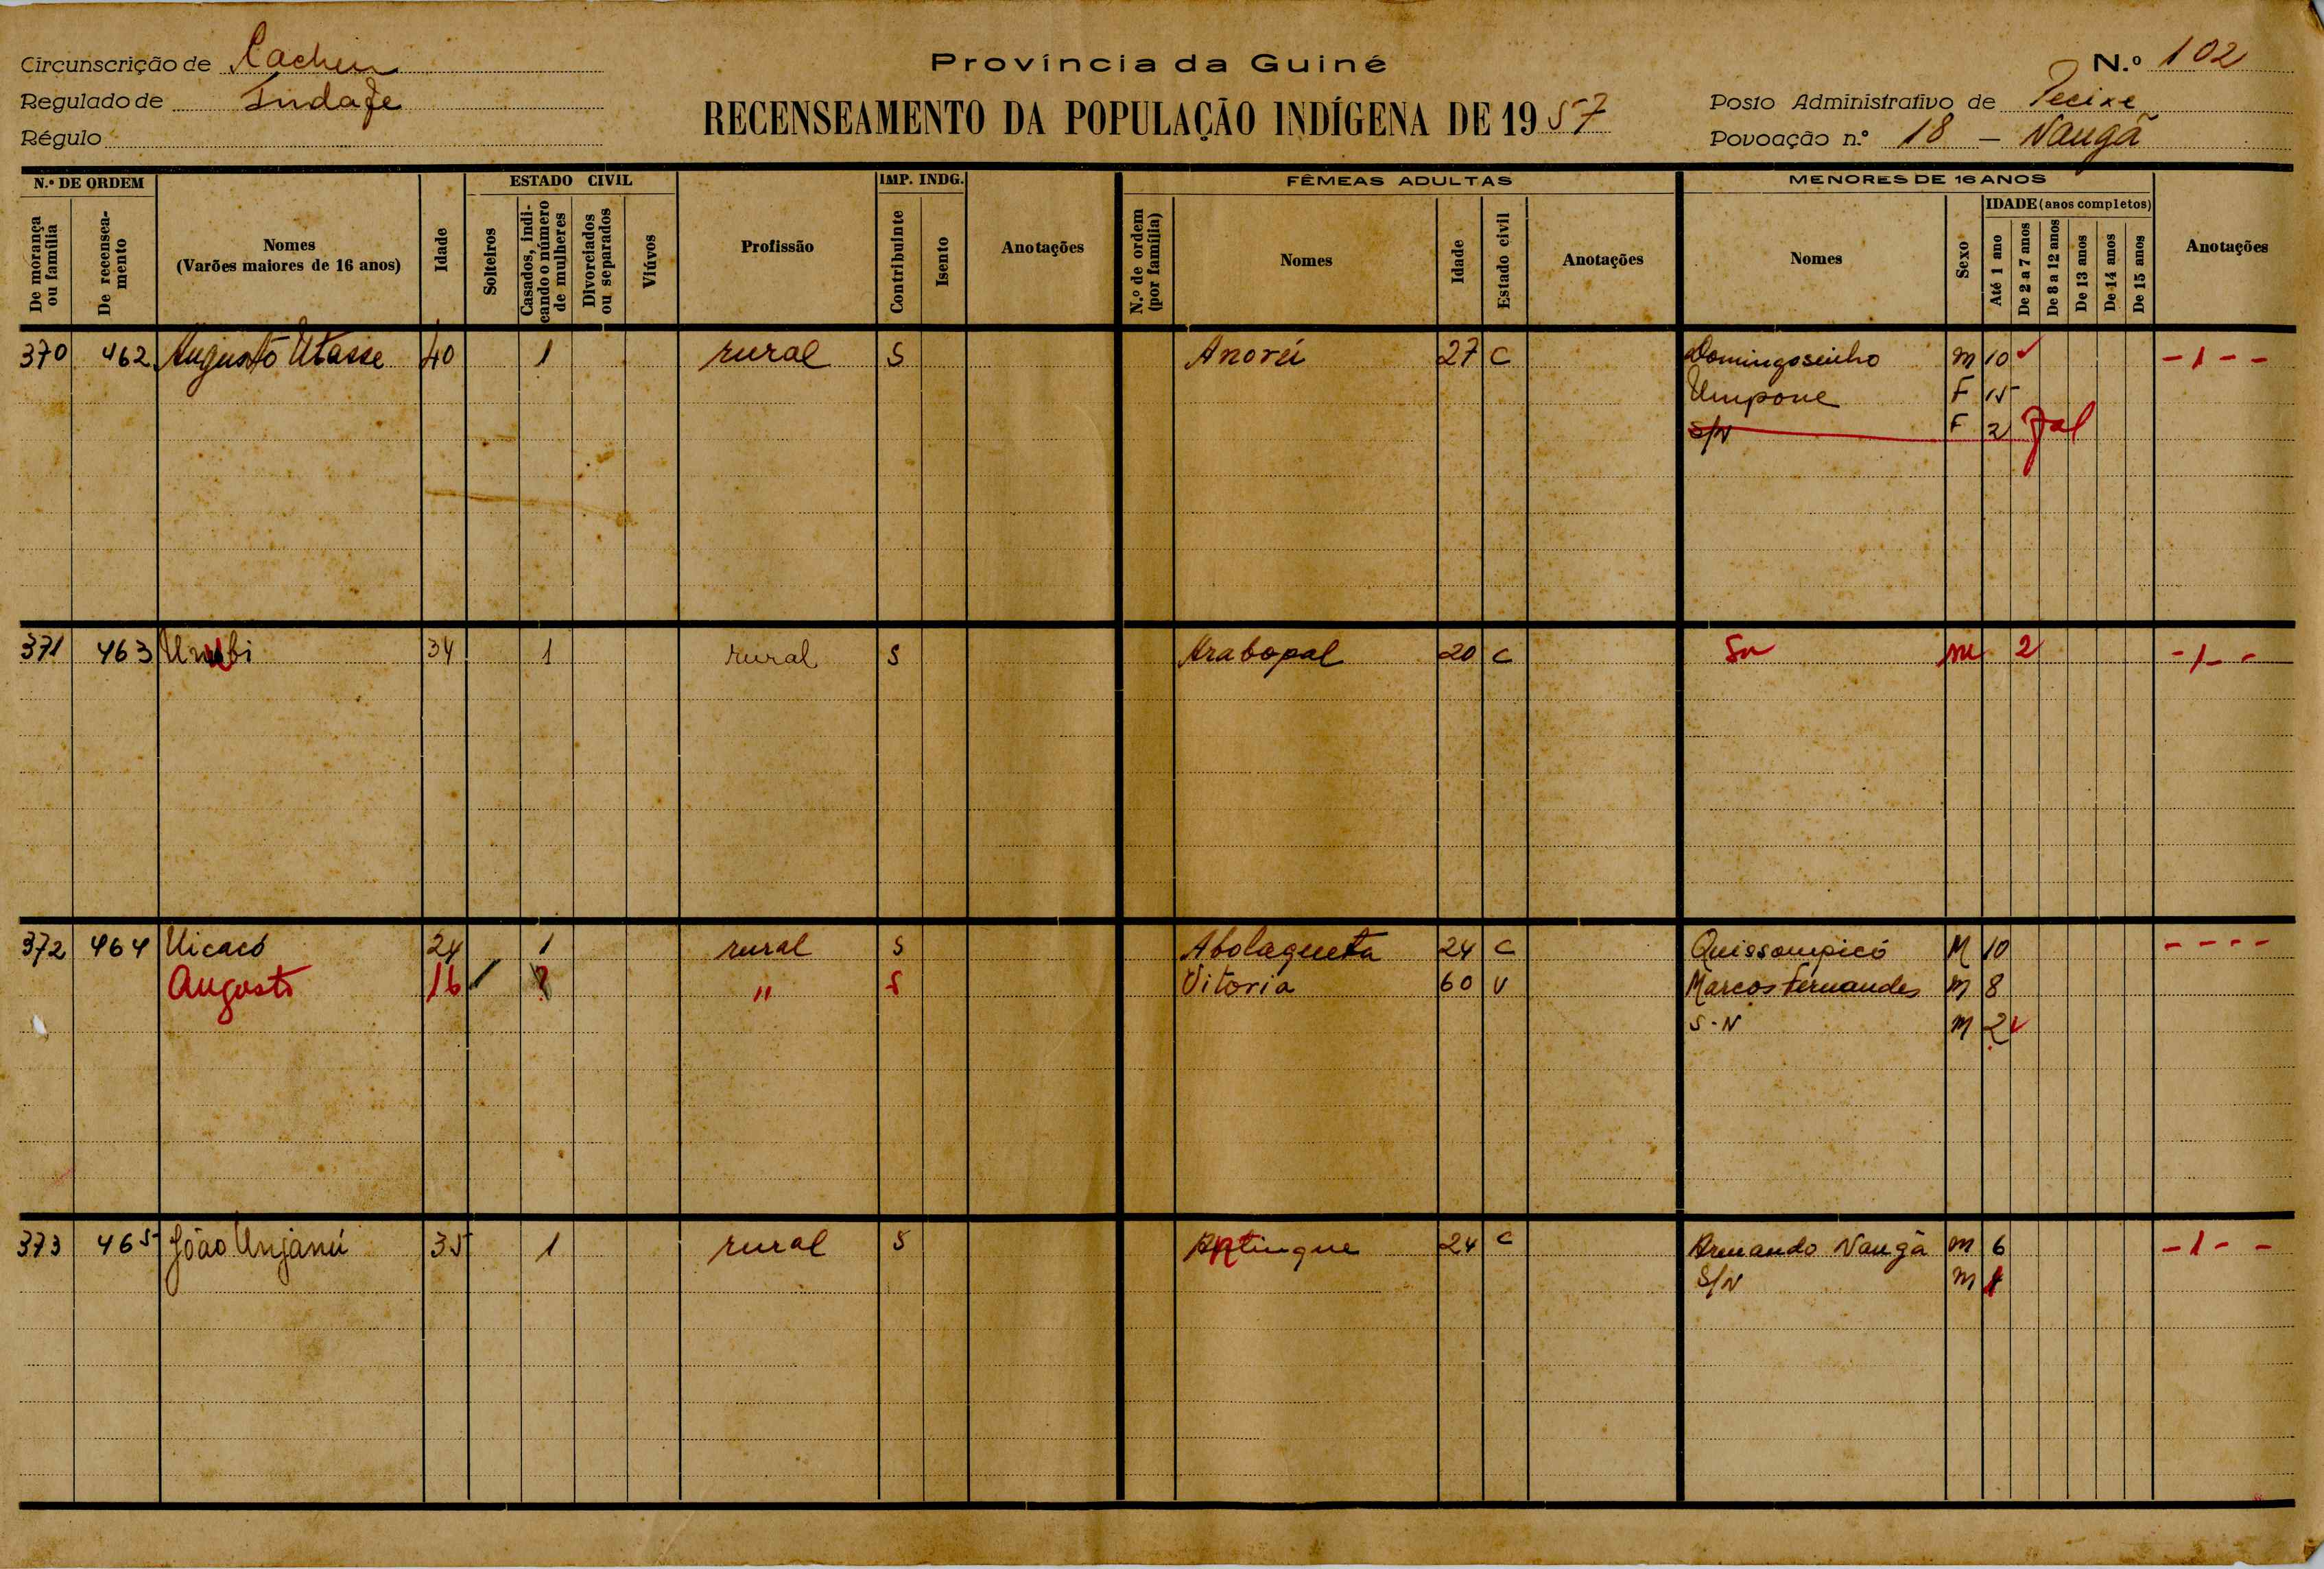 Província da Guiné
N.º 102
Circunscrição de Cacheu
Regulado de Indafe
Régulo
RECENSEAMENTO DA POPULAÇÃO INDÍGENA DE 1957
Posto Administrativo de Pecixe
Povoação n.º 18 – Naugã
N.º DE ORDEM
De morança ou família
De recenseamento
Nomes
(Varões maiores de 16 anos)
Idade
ESTADO CIVIL
Solteiros
Casados, indicando o número de mulheres
Divorciados ou separados
Viúvos
Profissão
IMP. INDG.
Contribuinte
Isento
Anotações
FÊMEAS ADULTAS
N.º de ordem (por família)
Nomes
Idade
Estado civil
Anotações
MENORES DE 16 ANOS
Nomes
Sexo
IDADE (anos completos)
Até 1 ano
De 2 a 7 anos
De 8 a 12 anos
De 13 anos
De 14 anos
De 15 anos
Anotações
370 462 Augusto Utasse 40 1 rural S Anoréi 27 C Domingosinho M 10 - 1 - -
Umpone F 15
S/N F 2 fal
371 463 34 1 rural S Arabopal 20 C Sn M 2 - 1 - -
372 464 Uicacó 24 1 rural S Abolagueta 24 C Quissompicó M 10 - - - -
Augusto 16 1 " S Vitoria 60 V Marcos Fernandes M 8
S-N M 2
373 465 João Unjanú 35 1 rural S Antingue 24 C Armando Naugã M 6 - 1 - -
S/N M